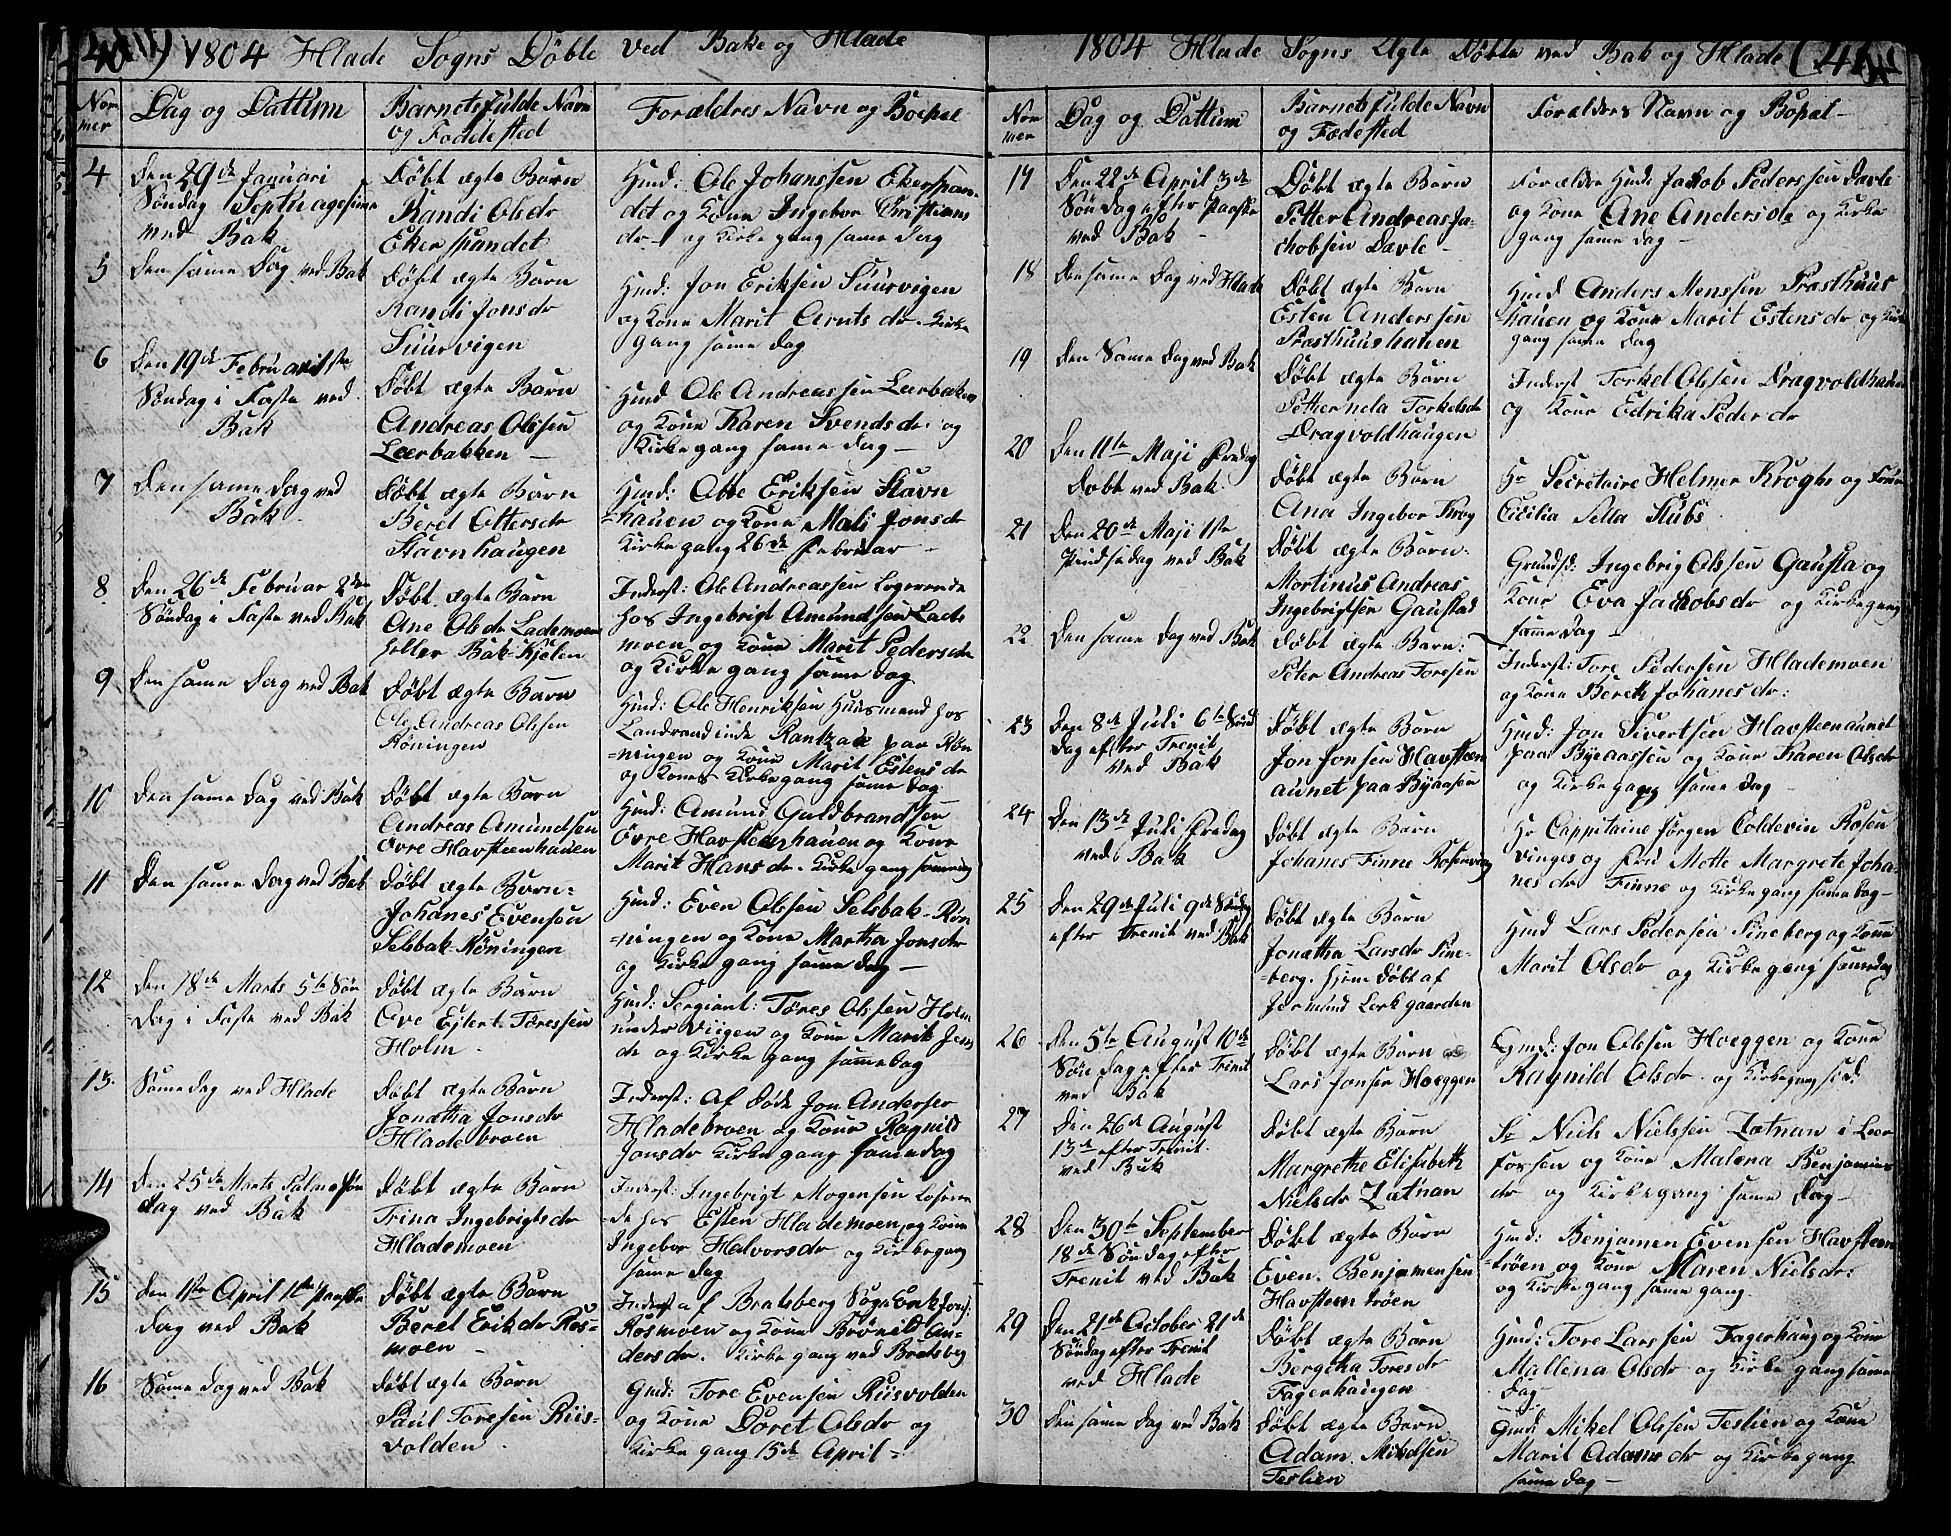 40) 1804 Hlade Sogns Döbte ved Bake og Hlade
Nom
mer
Dag og Dattum
Barnets fulde Navn
og Fødested
Forældres Navn og Boepæl
4
Den 29de Januari
Søndag Septuagesima
ved Bak
Døbt ægte Barn
Randi Olsdr
Ekerspandet
Hmd: Ole Johanssen Ekerspan-
det og Kone Ingebor Christians
dr og Kirkegang same Dag
5
Den same Dag ved Bak
Døbt ægte Barn
Randi Jonsdr
Suurvigen
Hmd: Jon Eriksen Suurvigen
og Kone Marit Arntsdr. Kirke
gang same Dag
6
Den 19de Februari 1ste
Søndag i Faste ved
Bak
Døbt ægte Barn
Andreas Olssen
Leerbakken
Hmd Ole Andreassen Leerbaken
og Kone Karen Svendsdr: og
Kirkegang same Dag
7
Den same Dag ved
Bak
Døbt ægte Barn
Beret Ottersdr
Stavnhaugen
Hmd: Otte Eriksen Stavn
=hauen og Kone Mali Jonsdr
Kirkegang 26de Februar
8
Den 26de Februar 2den
Søndag i Faste ved Bak
Døbt ægte Barn
Ane Olsdr Lademoen
heller Bak-Kjelen
Inderst: Ole Andreassen Logerende
hos Ingebrigt Amundsen Lade
moen og Kone Marit Pedersdr
og Kirkegang same Dag
9
Den same Dag ved Bak
Døbt ægte Barn
Ole Andreas Olssen
Røningen
Hmd: Ole Henriksen Huusmand hos
Landraadinde Rantzau paa Røn
=ningen og Kone Marit Estensdr
og Kones Kirkegang same Dag
10
Den same Dag ved Bak
Døbt ægte Barn
Andreas Amundsen
Øvre Havsteenhauen
Hmd: Amund Guldbrandsen
Øvre Havsteenhauen og Kone
Marit Hansdr. Kirkegang same Dag
11
Den same Dag ved Bak
Døbt ægte Barn:
Johanes Evensen
Selsbak-Røningen
Hmd: Even Olssen Selsbak-Røn
=ningen og Kone Martha Jonsdr
og Kirkegang same Dag
12
Den 18de Marts 5te Søn
=Dag i Faste ved Bak
Døbt ægte Barn
Ove Ejlert Tøressen
Holm
Hmd: Sergiant: Tøres Olssen Holm
under Viigen og Kone Marit Jens
dr og Kirkegang samme Dag
13.
Same Dag ved Hlade
Døbt ægte Barn
Jonatha Jonsdr
Hladebroen
Inderst: Af Døde Jon Anderser
Hladebroen og Kone Ragnild
Jonsdr Kirkegang same Dag
14
Den 25de Marts Palme Søn
dag ved Bak
Døbt ægte Barn
Trina Ingebrigtsdr
Hlademoen
Inderst: Ingebrigt Mogensen Loseren
de hos Esten Hlademoen og Kone
Ingebor Halvorsdr og Kirkegang
same Dag
15
Den 1ste April 1ste Paaske
Dag ved Bak
Døbt ægte Barn
Beret Eriksdr Ros-
moen
Inderst af Bratsberg Sogn Erik Jons:
Rosmoen og Kone Brønild An-
dersdr. Kirkegang ved Bratsberg
16
Same Dag ved Bak
Døbt ægte Barn
Paul Toresen Riis-
volden
Gmd: Tore Evensen Riisvolden
og Kone Doret Olsdr og
Kirkegang 15de April
1804 Hlade Sogns Ægte Døbte ved Bak og Hlade (41
Nom
mer
Dag og Dattum
Barnets fulde Navn
og Fædested
Forælders Navn og Bopæl
17
Den 22de April 3de
Søndag efter Paaske
ved Bak
Døbt ægte Barn
Petter Andreas Ja-
chobsen Davle
Forældre Hmd: Jacob Pederssen Davle
og Kone Ane Andersdr og Kirke
gang same Dag
18
Den same Dag ved Hlade
Døbt ægte Barn
Esten Anderssen
Præsthuushauen
Hmd Anders Monssen Præsthuus
hauen og Kone Marit Estensdr og Kirke
gang same Dag
19
Den Same Dag ved Bak
Døbt ægte Barn
Petternela Torkelsdr
Dragvoldhaugen
Inderst Torkel Olssen Dragvoldhauen
og Kone Edrika Pedersdr
20
Den 11te Maji Fredag
Døbt ved Bak
Døbt ægte Barn
Ana Ingebor Krog
Hr Secretaire Helmer Krogh og Frue
Cicilia Sella Stubs
21
Den 20de Maji 1ste
Pindsedag ved Bak
Døbt ægte Barn:
Mortinus Andreas
Ingebrigtsen Gaustad
Grmd: Ingebrig Olssen Gausta og
Kone Eva Jachobsdr og Kirkegang
same Dag
22
Den same Dag ved Bak
Døbt ægte Barn:
Peter Andreas Toresen
Inderst: Tore Pedersen Hlademoen
og Kone Bereth Johanesdr:
23
Den 8de Juli 6te Sønd
Dag efter Trenit
ved Bak
Døbt ægte Barn
Jon Jonsen Havsteen
aunet paa Byaasen
Hmd: Jon Sivertsen Havsteenaunet
paa Byeaassen og Kone Karen Olsdr
og Kirkegang same Dag
24
Den 13de Juli Fredag
ved Bak
Døbt ægte Barn
Johanes Finne Rosenving
Hr Cappitaine Jørgen Coldevin Rosen
vinges og Frue Mette Margrete Joha-
nesdr Finne og Kirkegang same Dag
25
Den 29de Juli 9de Søndag
efter Trenit ved Bak
Døbt ægte Barn
Jonatha Larsdr Pine-
=berg. Hjemdøbt af
Jermund Lerkgaarden
Hmd Lars Pedersen Pineberg og Kone
Marit Olsdr og Kirkegang same Dag
26
Den 5te August 10de
Søndag efter Trenit
ved Bak
Døbt ægte Barn
Lars Jonsen Hoeggen
Gmd: Jon Olssen Hoeggen og Kone
Ragnild Olsdr og Kirkegang s: d:
27
Den 26de August
13de efter Trenit.
ved Bak
Døbt ægte Barn
Margrethe Elisabeth
Nielsdr Zatnan
Sr Niels Nielssen Zatnan i Leer
forssen og Kone Malena Benjamins
dr og Kirkegang same Dag
28
Den 30te September
18de Søndag efter
Trenit ved Bak
Døbt ægte Barn
Even Benjamensen
Havsteentrøen
Hmd: Benjamen Evensen Havsteen
trøen og Kone Maren Nielsdr:
og Kirkegang same gang
29
Den 21de October 21de
Søndag efter Trenit
ved Hlade
Døbt ægte Barn
Bergitha Toresdr
Fagerhaugen
Hmd: Tore Larssen Fagerhaug og Kone
Mallena Olsdr og Kirkegang same
Dag
30
Den same Dag ved Bak
Døbt ægte Barn
Adam Mikelsen
Teslien
Gmd: Mikel Olssen Teslien og Kone
Marit Adamsdr og Kirkegang
same Dag